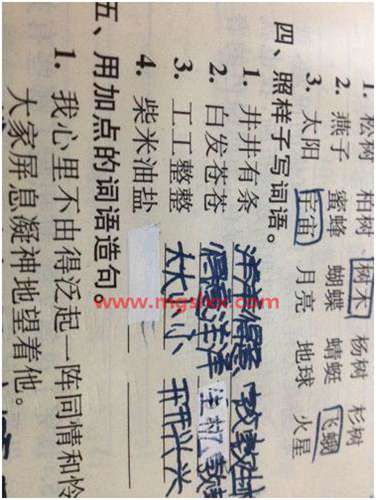 1. 松树 柏树 树木 杨树 杉树
2. 燕子 蜜蜂 蝴蝶 蜻蜓 飞蛾
3. 太阳 宇宙 月亮 地球 火星
四、照样子写词语。
1. 井井有条 洋洋得意
2. 白发苍苍 得意洋洋
3. 工工整整 大大小小
4. 柴米油盐
五、用加点的词语造句。
1. 我心里不由得泛起一阵同情和怜
大家屏息凝神地望着他。